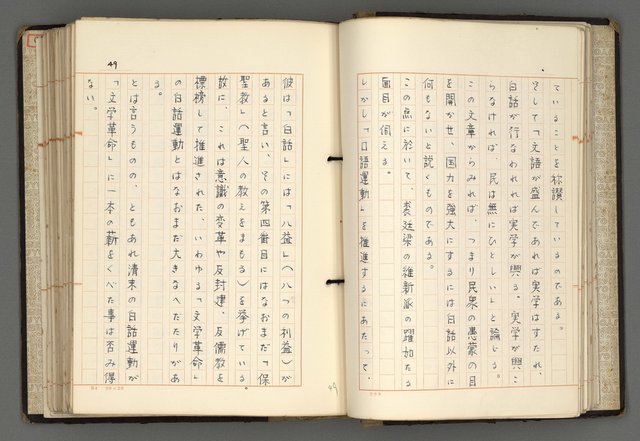 ていることを称讃しているのである。
そして「文語が盛んであれば実学はすたれ、
白話が行なわれれば実学が興る。実学が興こ
らなければ、民は無にひとしい」と論じる。
この文章からみれば、つまり民衆の愚蒙の目
を開かせ、国力を強大にするには白話以外に
何もないと説くものである。
この点に於いて、裘廷梁の維新派の躍如たる
面目が伺える。
しかし「口語運動」を推進するにあたって、
49
彼は「白話」には「八益」（八つの利益）が
あると言い、その第四番目にはなおまだ「保
聖教」（聖人の教えをまもる）を挙げている。
故に、これは意識の変革や反封建、反儒教を
標榜して推進された、いわゆる「文学革命」
の白話運動とはなおまだ大きなへだたりがあ
る。
とは言うものの、ともあれ清末の白話運動が
「文学革命」に一本の薪をくべた事は否み得
ない。
49
20×20